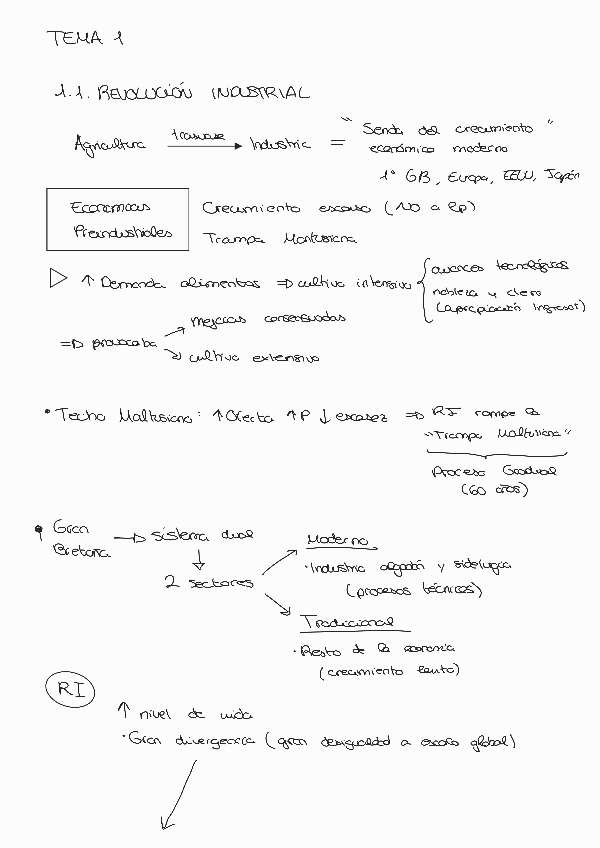 TEMA 1
1.1. REVOLUCIÓN INDUSTRIAL
Agricultura trasvase → Industria = "Senda del crecimiento"
económico moderno
1º GB, Europa, EEUU, Japón
Economías Crecimiento escaso (NO a lp)
Preindustriales Trampa Maltusiana
▷ ↑ Demanda alimentos ⇒ cultivo intensivo { avances tecnológicos
nobleza y clero
(apropiación ingresos)
⇒ provocaba → mejoras conservadas
→ cultivo extensivo
• Techo Maltusiano: ↑Oferta ↑P ↓ escasez ⇒ RI rompe la
"Trampa Maltusiana"
Proceso Gradual
(60 años)
• Gran Bretaña → sistema dual
↓
2 sectores
Moderno
· Industria algodón y siderurgia
(procesos técnicos)
Tradicional
· Resto de la economía
(crecimiento lento)
RI
↑ nivel de vida
· Gran divergencia (gran desigualdad a escala global)